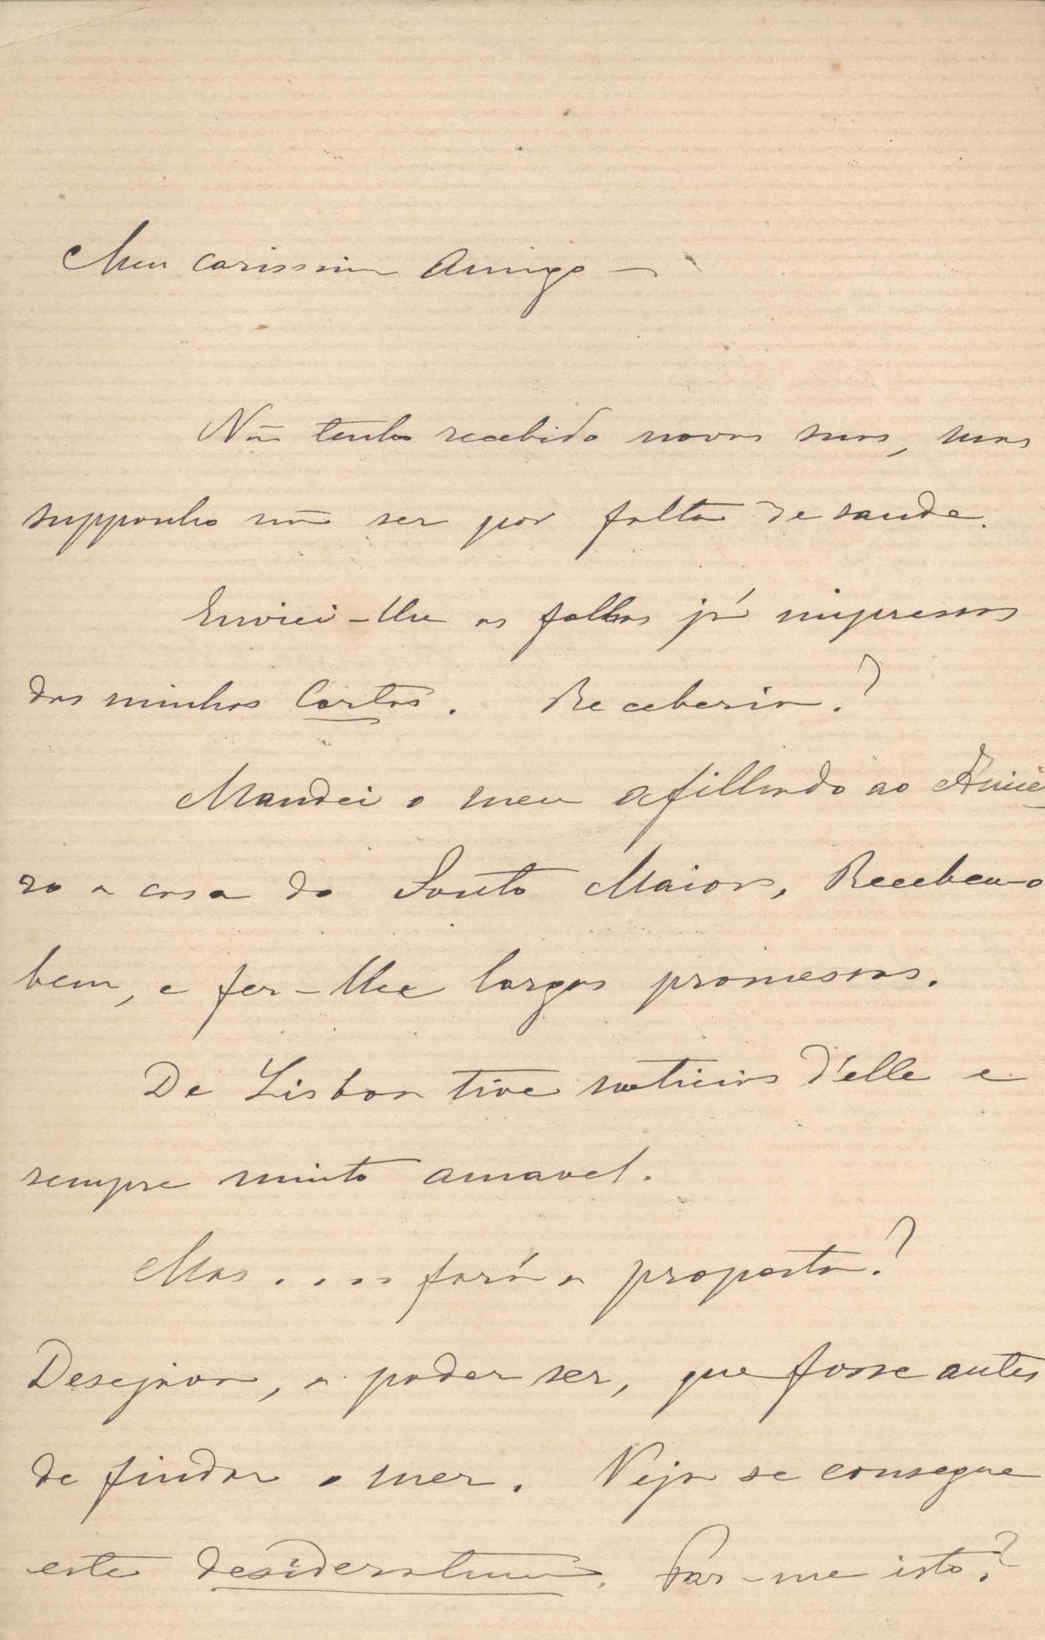 Meu carissimo Amigo —
Nã tenho recebido novas suas, mas
supponho nã ser por falta de saude.
Enviei-lhe as folhas já impressas
das minhas Cartas. Receberia?
Mandei o meu afilhado ao
ro a casa do Souto Maior, Recebeu-o
bem, e fez-lhe largas promessas.
De Lisboa tive noticias d'elle e
sempre muito amavel.
Mas .... fará a proposta?
Desejava, a poder ser, que fosse antes
de findar o mez. Veja se consegue
este desideratum. Faz-me isto?